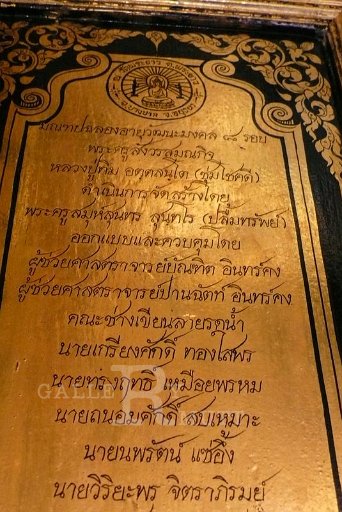 มณฑปฉลองอายุวัฒนะมงคล ๘๘ รอบ
พระครูสังวรสมณกิจ
หลวงปู่ทิม อตฺตสนฺโต (ชุ่มโชคดี)
ดำเนินการจัดสร้างโดย
พระครูสมุห์สุนทร สุนฺทโร (ปลื้มทรัพย์)
ออกแบบและควบคุมโดย
ผู้ช่วยศาสตราจารย์บัณฑิต อินทร์คง
ผู้ช่วยศาสตราจารย์ปานฉัตท์ อินทร์คง
คณะช่างเขียนลายรดน้ำ
นายเกรียงศักดิ์ ทองใสพร
นายทรงฤทธิ์ เหมือยพรหม
GALLE
นายถนอมศักดิ์ สบเหมาะ
นายนพรัตน์ แซ่อึ้ง
นายวิริยะพร จิตราภิรมย์